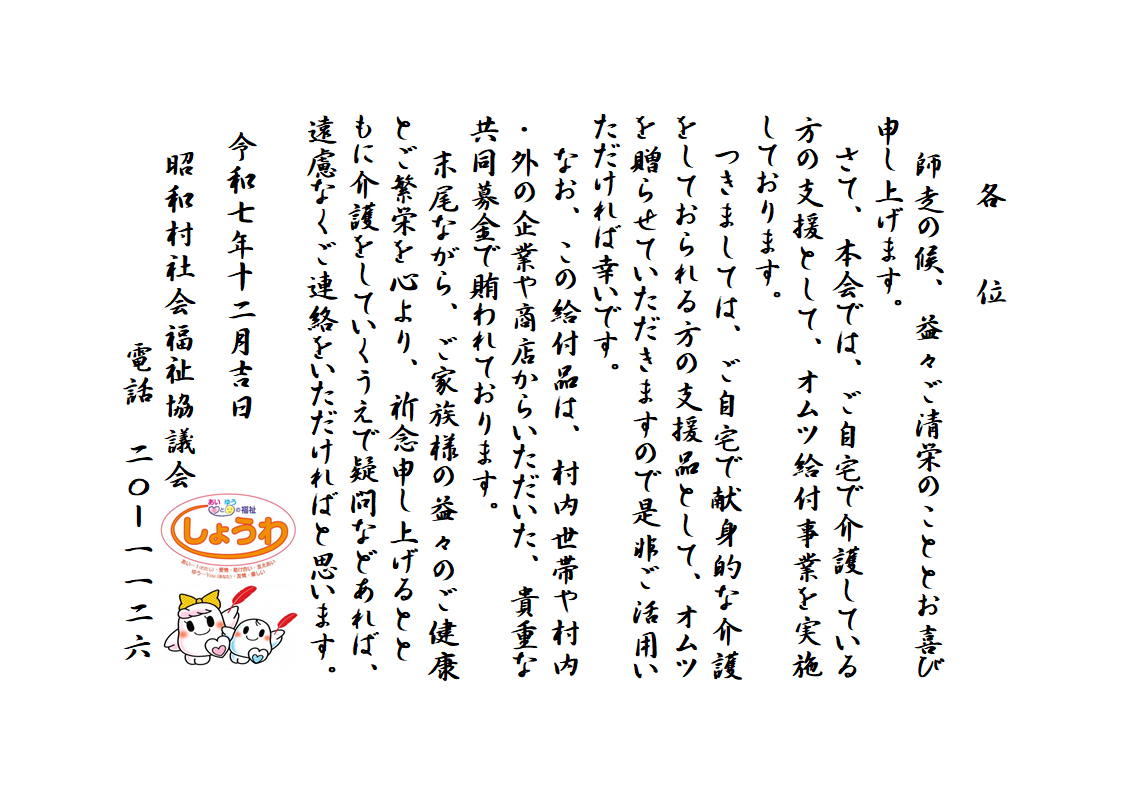 各　位
師走の候、益々ご清栄のこととお喜び
申し上げます。
さて、本会では、ご自宅で介護している
方の支援として、オムツ給付事業を実施
しております。
つきましては、ご自宅で献身的な介護
をしておられる方の支援品として、オムツ
を贈らせていただきますので是非ご活用い
ただければ幸いです。
なお、この給付品は、村内世帯や村内
・外の企業や商店からいただいた、貴重な
共同募金で賄われております。
末尾ながら、ご家族様の益々のご健康
とご繁栄を心より、祈念申し上げるとと
もに介護をしていくうえで疑問などあれば、
遠慮なくご連絡をいただければと思います。
令和七年十二月吉日
昭和村社会福祉協議会
電話　二〇ー一一二六
あいとゆうの福祉
しょうわ